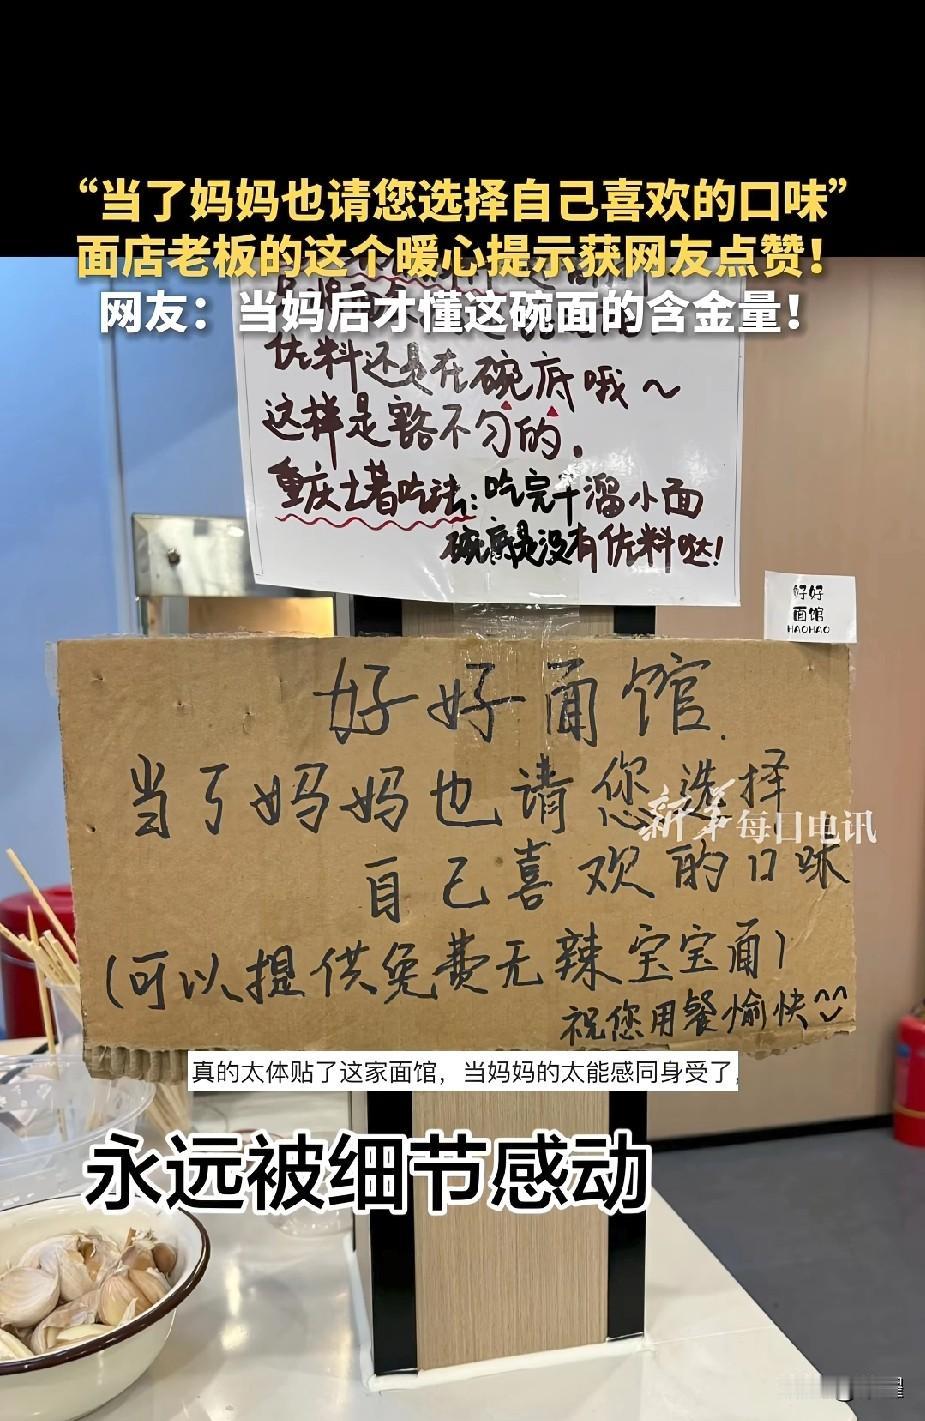 “当了妈妈也请您选择自己喜欢的口味”
面店老板的这个暖心提示获网友点赞！
网友：当妈后才懂这碗面的含金量！
佐料还是在碗底哦～
这样是豁不匀的.
重庆土著吃法:吃完干溜小面
碗底是没有佐料哒!
好好
面馆
HAOHAO
好好面馆.
当了妈妈也请您选择
新华每日电讯
自己喜欢的口味
(可以提供免费无辣宝宝面)
祝您用餐愉快^^
真的太体贴了这家面馆，当妈妈的太能感同身受了，
永远被细节感动